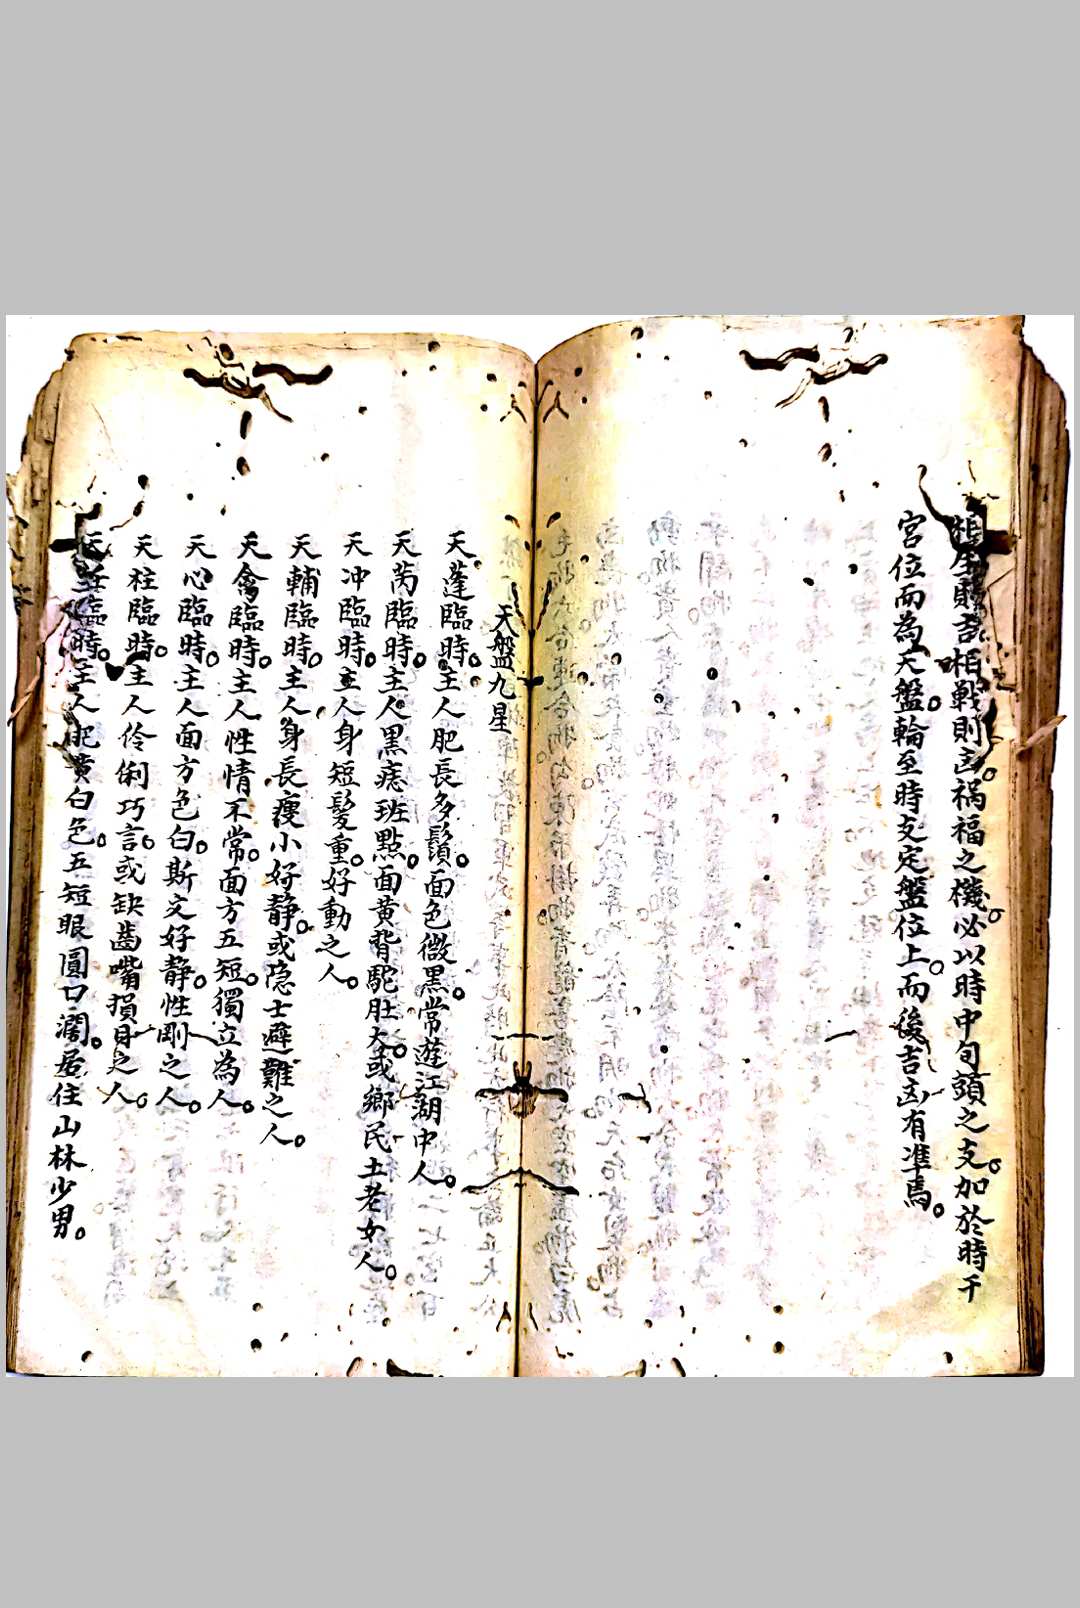 相生則吉相戰則凶。禍福之機。必以時中旬頭之支。加於時干
宮位而為天盤。輪至時支定盤位上。而後吉凶有準焉。
天盤九星
天蓬臨時。主人肥長多鬚。面色微黑。常遊江湖中人。
天芮臨時。主人黑痣班點。面黄背駝肚大。或鄉民土老女人。
天冲臨時。主人身短髮重。好動之人。
天輔臨時。主人身長瘦小好静。或隐士避難之人。
天禽臨時。主人性情不常。面方五短。獨立為人。
天心臨時。主人面方色白。斯文好静。性剛之人。
天柱臨時。主人伶俐巧言。或缺齒嘴損目之人。
天任臨時。主人肥黄白色。五短眼圓口濶。居住山林少男。